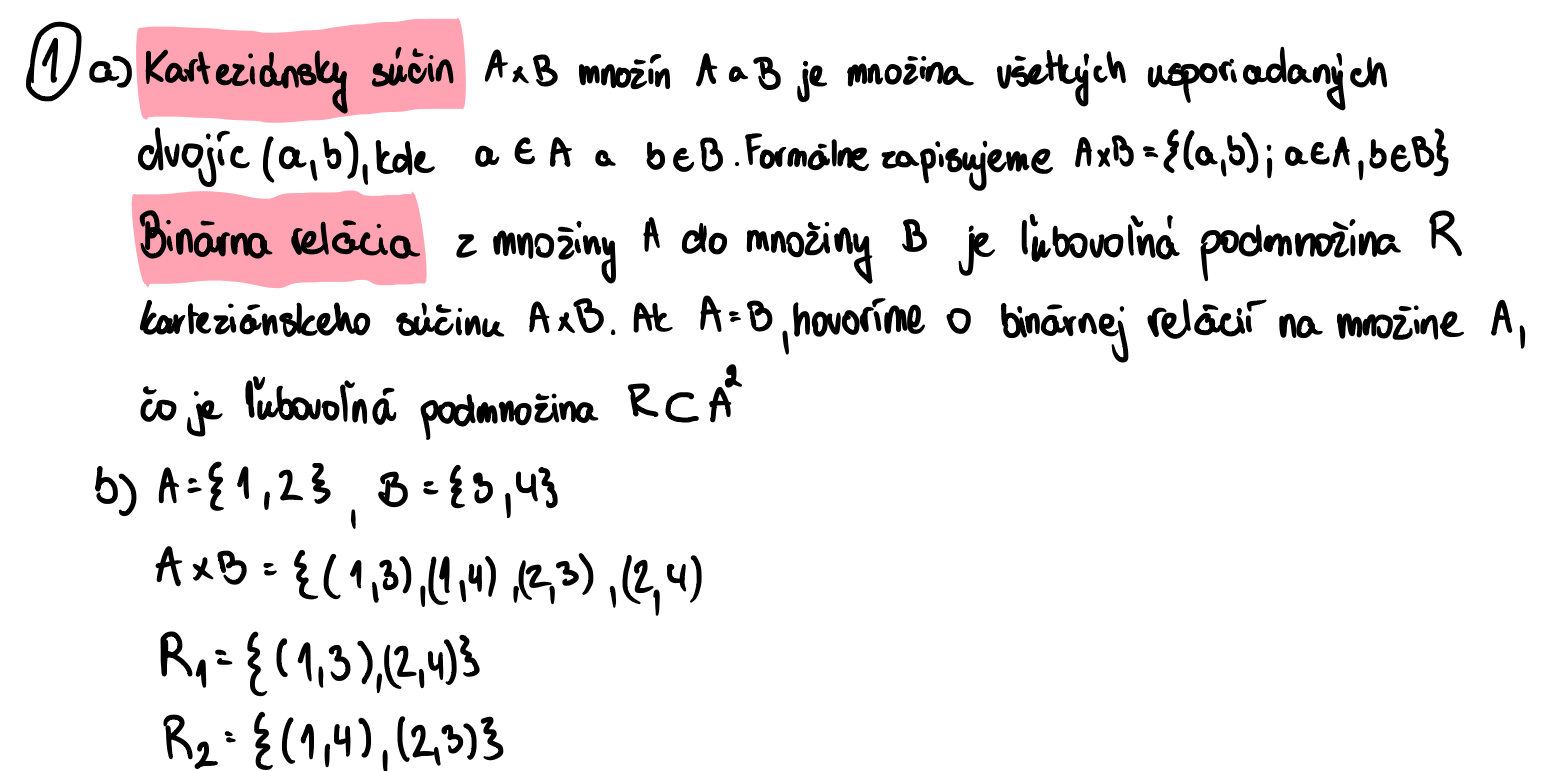 1 a) Karteziánsky súčin A×B množín A a B je množina všetkých usporiadaných
dvojíc (a,b), kde a ∈ A a b∈B. Formálne zapisujeme A×B={(a,b); a∈A, b∈B}
Binárna relácia z množiny A do množiny B je ľubovoľná podmnožina R
karteziánskeho súčinu A×B. Ak A=B, hovoríme o binárnej relácií na množine A,
čo je ľubovoľná podmnožina R⊂A²
b) A={1,2}, B={3,4}
A×B={(1,3),(1,4),(2,3),(2,4)
R₁={(1,3),(2,4)}
R₂={(1,4),(2,3)}